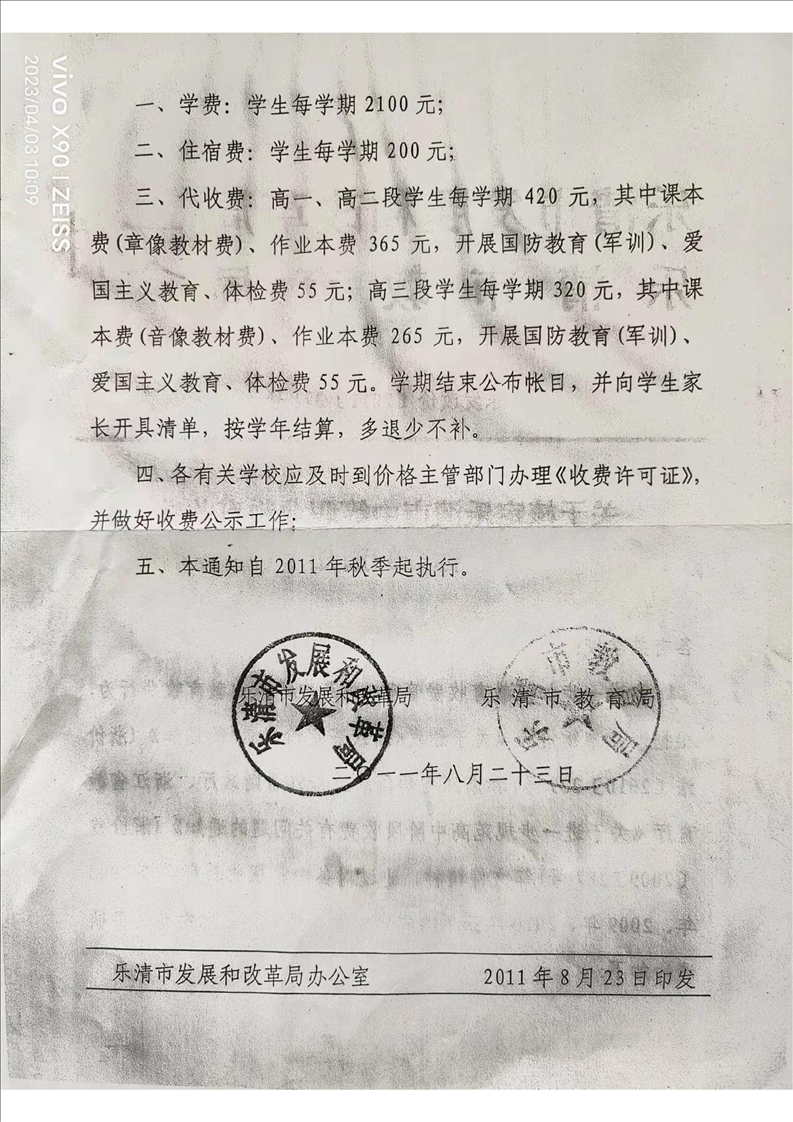 一、学费：学生每学期2100元；
二、住宿费：学生每学期200元；
三、代收费：高一、高二段学生每学期 420 元，其中课本
费(章像教材费)、作业本费 365 元，开展国防教育(军训)、爱
国主义教育、体检费55元；高三段学生每学期320元，其中课
本费(音像教材费)、作业本费 265 元，开展国防教育(军训)、
爱国主义教育、体检费55元。学期结束公布帐目，并向学生家
长开具清单，按学年结算，多退少不补。
四、各有关学校应及时到价格主管部门办理《收费许可证》，
并做好收费公示工作；
五、本通知自2011年秋季起执行。
乐清市发展和改革局 乐清市教育局
乐清市发展和改革局
乐清市教育局
二〇一一年八月二十三日
乐清市发展和改革局办公室 2011年8月23日印发
vivo X90 | ZEISS
2023/04/03 10:09